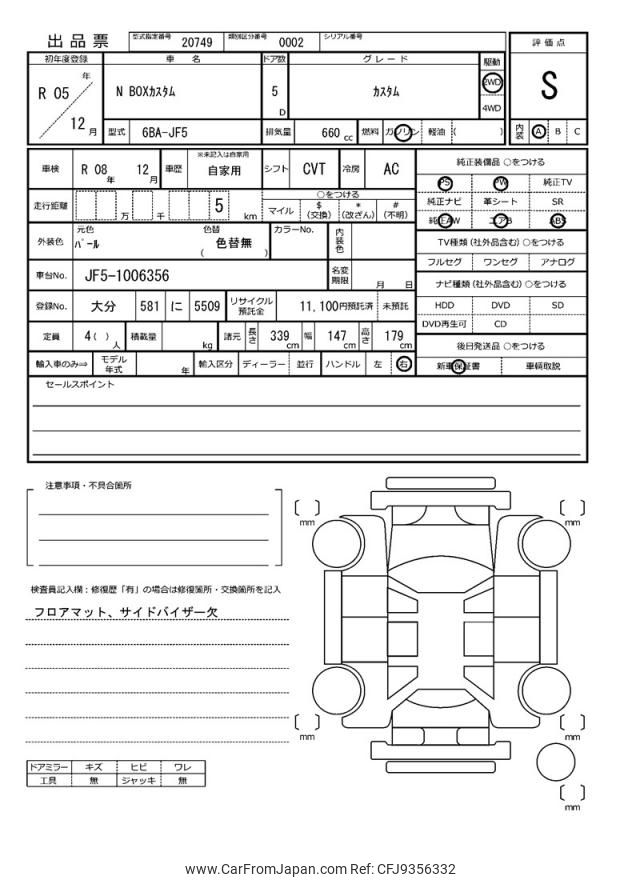 出品票 型式指定番号 20749 類別区分番号 0002 シリアル番号
評価点
S
内装 A B C
初年度登録 車名 ドア数 グレード 駆動
R 05 年 12 月 N BOXカスタム 5 D カスタム 2WD 4WD
型式 6BA-JF5 排気量 660 cc 燃料 ガソリン 軽油 ( )
車検 R 08 年 12 月 車歴 ※未記入は自家用 自家用 シフト CVT 冷房 AC
走行距離 万 千 5 km ○をつける
マイル $ (交換) * (改ざん) # (不明)
外装色 元色 パール 色替 色替無 ( ) カラーNo. 内装色
車台No. JF5-1006356 名変期限 月 日
登録No. 大分 581 に 5509 リサイクル預託金 11,100円預託済 未預託
定員 4( ) 人 積載量 kg 諸元 長さ 339 cm 幅 147 cm 高さ 179 cm
輸入車のみ⇒ モデル年式 年 輸入区分 ディーラー 並行 ハンドル 左 右
純正装備品 ○をつける
PS PW 純正TV
純正ナビ 革シート SR
純正AW エアB ABS
TV種類(社外品含む)○をつける
フルセグ ワンセグ アナログ
ナビ種類(社外品含む)○をつける
HDD DVD SD
DVD再生可 CD
後日発送品 ○をつける
新車保証書 車輌取説
セールスポイント
注意事項・不具合箇所
検査員記入欄:修復歴「有」の場合は修復箇所・交換箇所を記入
フロアマット、サイドバイザー欠
ドアミラー キズ ヒビ ワレ
工具 無 ジャッキ 無
[ ] mm
[ ] mm
[ ] mm
[ ] mm
[ ] mm
www.CarFromJapan.com Ref: CFJ9356332